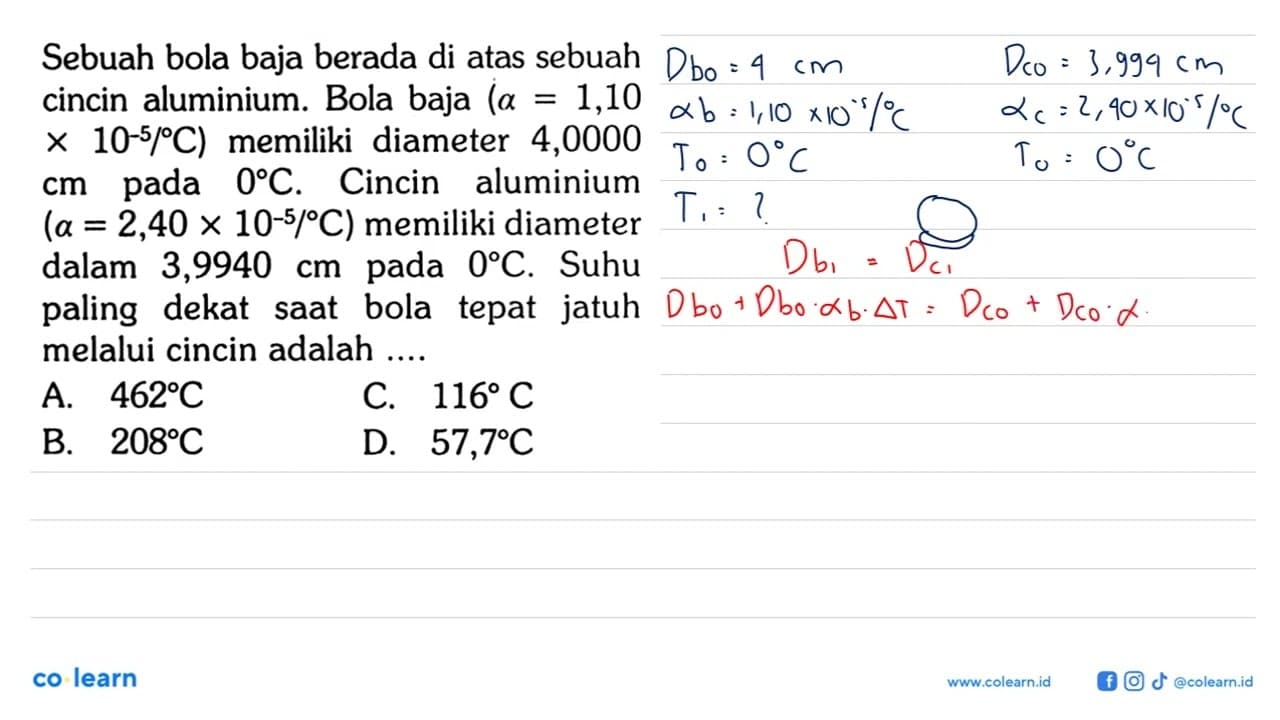 Sebuah bola baja berada di atas sebuah
cincin aluminium. Bola baja (α = 1,10
× 10⁻⁵/°C) memiliki diameter 4,0000
cm pada 0°C. Cincin aluminium
(α = 2,40 × 10⁻⁵/°C) memiliki diameter
dalam 3,9940 cm pada 0°C. Suhu
paling dekat saat bola tepat jatuh
melalui cincin adalah ....
A. 462°C C. 116° C
B. 208°C D. 57,7°C
Dbo = 4 cm Dco = 3,994 cm
αb = 1,10 ×10⁻⁵/°C αc = 2,40×10⁻⁵/°C
To = 0°C To = 0°C
T₁ = ?
Db₁ = Dc₁
Dbo + Dbo·αb·ΔT = Dco + Dco·α
co learn
www.colearn.id @colearn.id